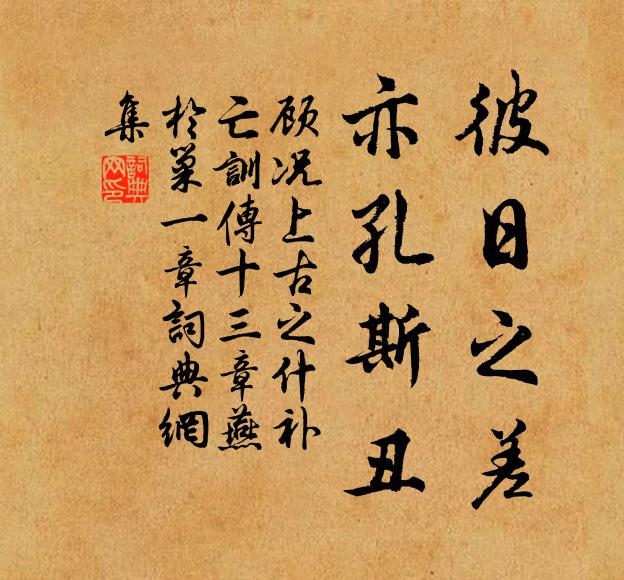 彼日之差
亦孔斯丑
顾况上古之什补
亡訓傳十三章燕
於巢一章詞典網
集
詞典
网印